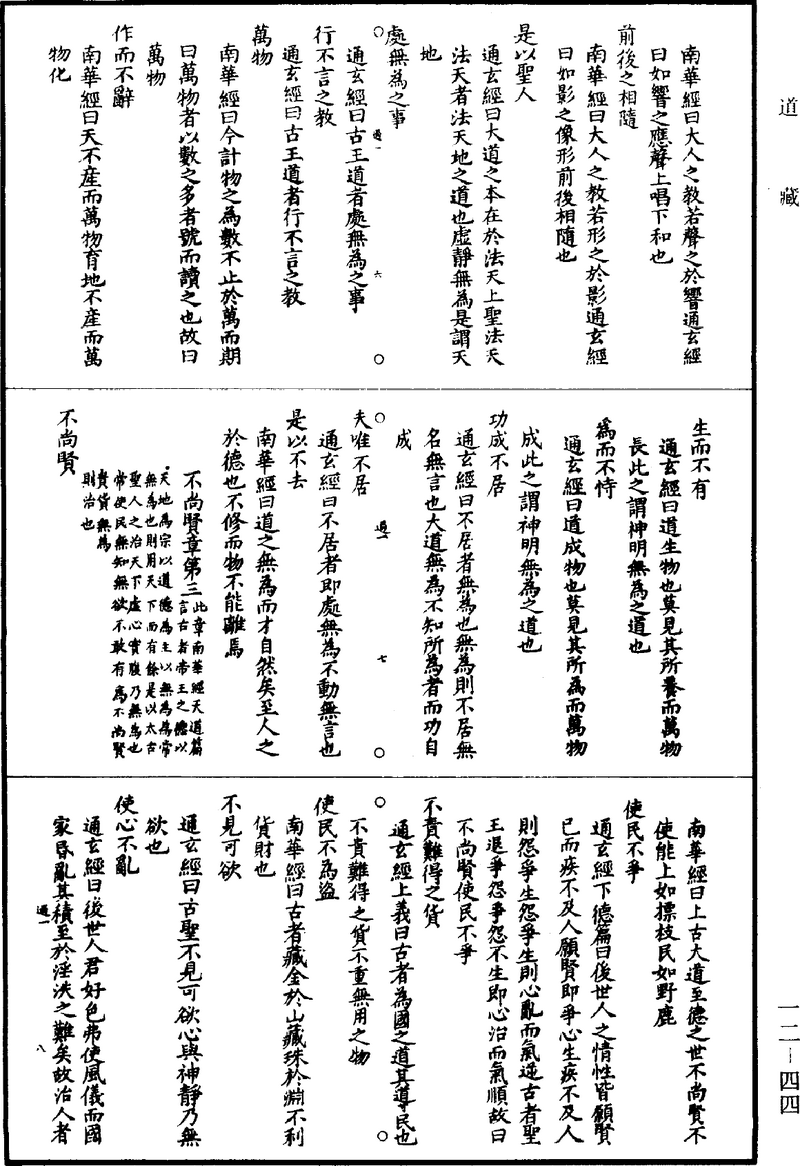 道藏
南華經曰大人之教若聲之於響通玄經
曰如響之應聲上唱下和也
前後之相隨
南華經曰大人之教若形之於影通玄經
曰如影之像形前後相隨也
是以聖人
通玄經曰大道之本在於法天上聖法天
法天者法天地之道也虛靜無為是謂天
地
處無為之事
通玄經曰古王道者處無為之事
行不言之教
通玄經曰古王道者行不言之教
萬物
南華經曰今計物之為數不止於萬而期
曰萬物者以數之多者號而讀之也故曰
萬物
作而不辭
南華經曰天不産而萬物育地不産而萬
物化
過一
六
生而不有
通玄經曰道生物也莫見其所養而萬物
長此之謂神明無為之道也
為而不恃
通玄經曰道成物也莫見其所為而萬物
成此之謂神明無為之道也
功成不居
通玄經曰不居者無為也無為則不居無
名無言也大道無為不知所為者而功自
成
夫唯不居
通玄經曰不居者即處無為不動無言也
是以不去
南華經曰道之無為而才自然矣至人之
於德也不修而物不能離焉
不尚賢章第三
此章南華經天道篇
言古者帝王之德以
天地為宗以道德為主以無為為常
無為也則用天下而有餘是以太古
聖人之治天下虛心實腹乃無為也
常使民無知無欲不敢有為不尚賢
貴貨無為
則治也
不尚賢
過一
七
南華經曰上古大道至德之世不尚賢不
使能上如摽枝民如野鹿
使民不爭
通玄經下德篇曰後世人之情性皆願賢
已而疾不及人願賢即爭心生疾不及人
則怨爭生怨爭生則心亂而氣逆古者聖
王退爭怨爭怨不生即心治而氣順故曰
不尚賢使民不爭
不貴難得之貨
通玄經上義曰古者為國之道其導民也
不貴難得之貨不重無用之物
使民不為盜
南華經曰古者藏金於山藏珠於淵不利
貨財也
不見可欲
通玄經曰古聖不見可欲心與神靜乃無
欲也
使心不亂
通玄經曰後世人君好色弗使風儀而國
家昏亂其積至於淫泆之難矣故治人者
過一
八
一二-四四